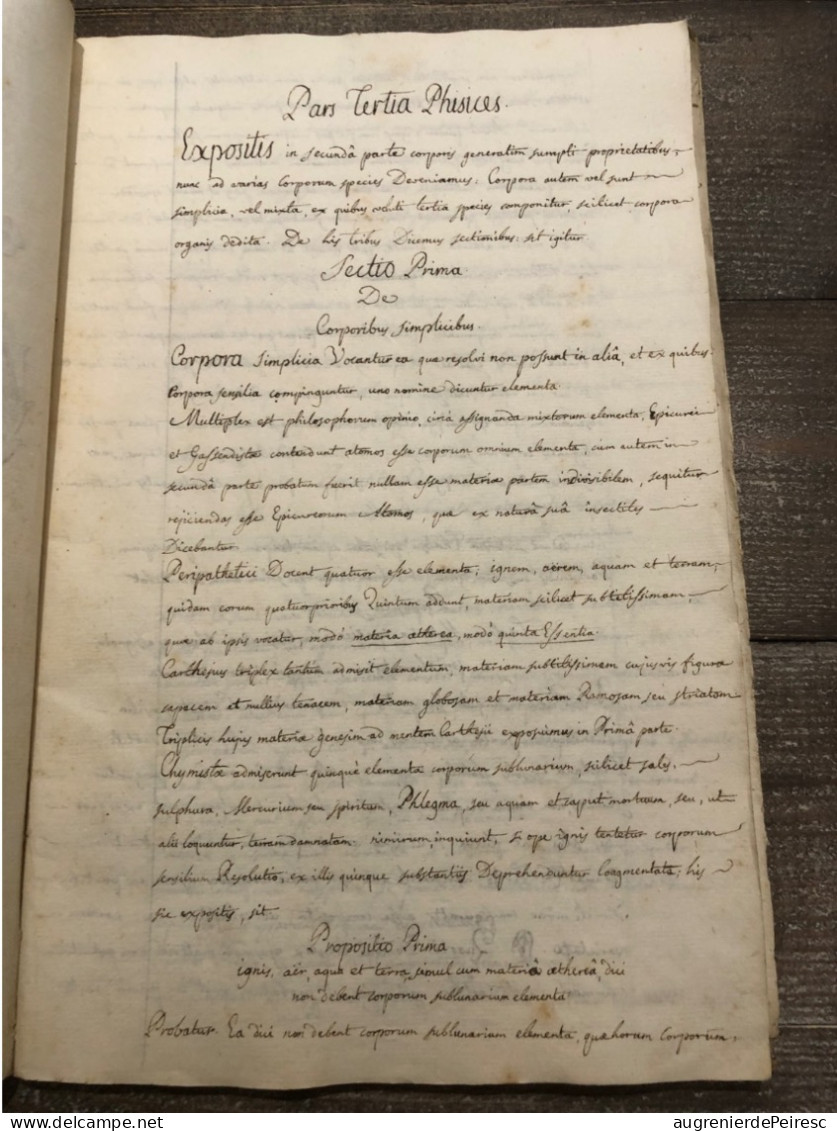 Pars Tertia Phisices.
Expositis in secundâ parte corporis generatim sumpti proprietatibus,
nunc ad varias Corporum species Deveniamus. Corpora autem vel sunt
simplicia, vel mixta, ex quibus veluti tertia species componitur, scilicet corpora
organis dedita. De his tribus Dicemus sectionibus. sit igitur.
Sectio Prima
De
Corporibus simplicibus.
Corpora Simplicia Vocantur ea quæ resolvi non possunt in aliâ, et ex quibus
Corpora sensilia compinguntur, uno nomine dicuntur elementa.
Multiplex est philosophorum opinio, circà assignanda mixtorum elementa, Epicurei
et Gassendistæ contendunt atomos esse corporum omnium elementa, cum autem in
secundâ parte probatum fuerit nullam esse materiæ partem indivisibilem, sequitur
rejiciendas esse Epicureorum Atomos, quæ ex naturâ suâ insectiles
Dicebantur
Peripathetici Docent quatuor esse elementa; ignem, aërem, aquam et terram;
quidam eorum quatuor prioribus Quintum addunt, materiam scilicet subtilissimam,
quæ ab ipsis vocatur, modò materia ætherea, modò quinta Essentia.
Carthesius triplex tantum admisit elementum, materiam subtilissimam cujusvis figuræ
capacem et nullius tenacem, materiam globosam et materiam Ramosam seu striatam
Triplicis hujus materiæ genesim ad mentem Carthesii exposuimus in Primâ parte.
Chymistæ admiserunt quinquè elementa corporum sublunarium, scilicet salis,
sulphura, Mercurium seu spiritum, Phlegma, seu aquam et caput mortuum, seu, ut
alii loquuntur, terram damnatam. nimirum, inquiunt, si ope ignis tentetur corporum
sensilium Resolutio, ex illis quinque substantiis Deprehenduntur Coagmentata; his
sic expositis, sit
Propositio Prima
ignis, aër, aqua et terra, simul cum materiâ æthereâ, dici
non debent corporum sublunarium elementa
Probatur. Ea dici non debent corporum sublunarium elementa, quæ horum corporum,
augrenierdePeiresc